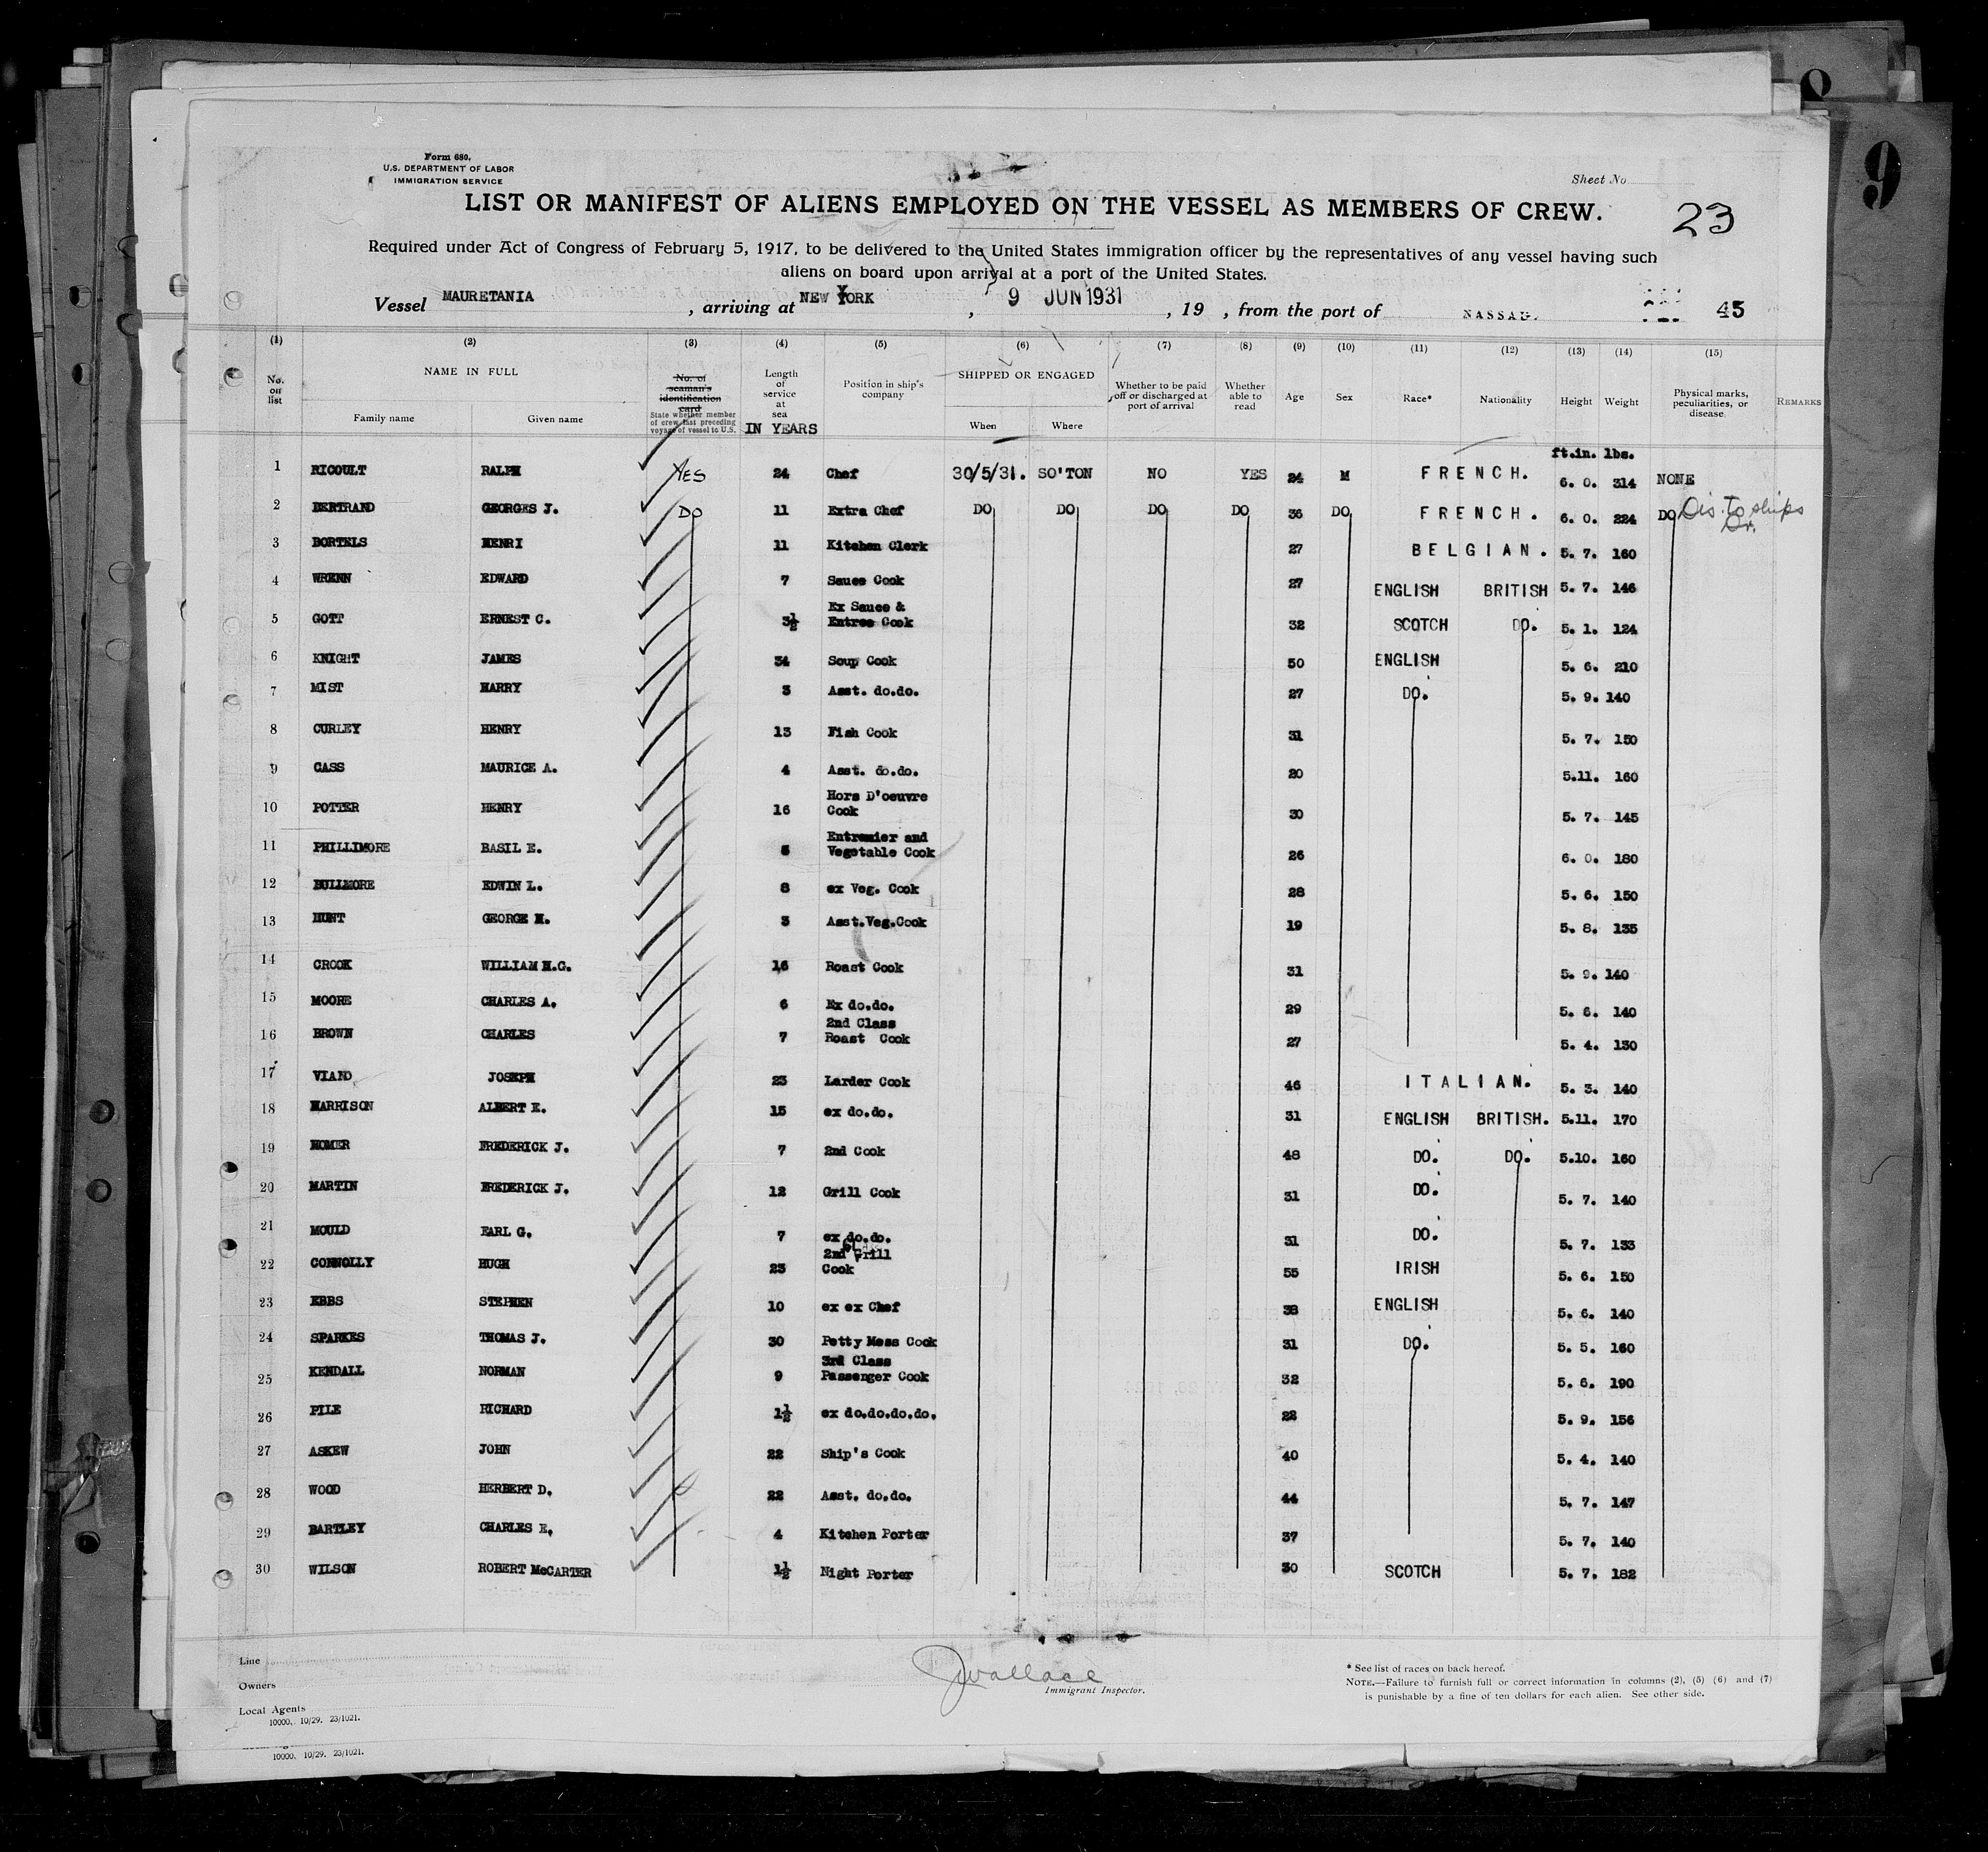 Form 680.
U.S. DEPARTMENT OF LABOR
IMMIGRATION SERVICE
Sheet No
LIST OR MANIFEST OF ALIENS EMPLOYED ON THE VESSEL AS MEMBERS OF CREW.
23
9
Required under Act of Congress of February 5, 1917, to be delivered to the United States immigration officer by the representatives of any vessel having such
aliens on board upon arrival at a port of the United States.
Vessel MAURETANIA , arriving at NEW YORK , 9 JUN 1931 , 19 , from the port of NASSAU. 45
(1) (2) (3) (4) (5) (6) (7) (8) (9) (10) (11) (12) (13) (14) (15)
No. on list NAME IN FULL Family name Given name No. of seaman's identification card State whether member of crew last preceding voyage of vessel to U.S. Length of service at sea IN YEARS Position in ship's company SHIPPED OR ENGAGED When Where Whether to be paid off or discharged at port of arrival Whether able to read Age Sex Race* Nationality Height Weight Physical marks, peculiarities, or disease. REMARKS
ft.in. lbs.
1 RICOULT RALPH YES 24 Chef 30/5/31. SO'TON NO YES 24 M FRENCH. 6. 0. 314 NONE
2 BERTRAND GEORGES J. DO 11 Extra Chef DO DO DO DO 36 DO FRENCH. 6. 0. 224 DO Dis. to ships Dr.
3 BORTELS HENRI 11 Kitchen Clerk 27 BELGIAN. 5. 7. 160
4 WRENN EDWARD 7 Sauce Cook 27 ENGLISH BRITISH 5. 7. 146
5 GOTT ERNEST C. 3½ Ex Sauce & Entree Cook 32 SCOTCH DO. 5. 1. 124
6 KNIGHT JAMES 34 Soup Cook 50 ENGLISH 5. 6. 210
7 MIST HARRY 3 Asst. do.do. 27 DO. 5. 9. 140
8 CURLEY HENRY 13 Fish Cook 31 5. 7. 150
9 CASS MAURICE A. 4 Asst. do.do. 20 5.11. 160
10 POTTER HENRY 16 Hors D'oeuvre Cook 30 5. 7. 145
11 PHILLIMORE BASIL E. Entremier and Vegetable Cook 26 6. 0. 180
12 BULLMORE EDWIN L. 8 ex Veg. Cook 28 5. 6. 150
13 HUNT GEORGE H. 3 Asst.Veg.Cook 19 5. 8. 135
14 CROOK WILLIAM H.G. 16 Roast Cook 31 5. 9. 140
15 MOORE CHARLES A. 6 Ex do.do. 29 5. 6. 140
16 BROWN CHARLES 7 2nd Class Roast Cook 27 5. 4. 130
17 VIAND JOSEPH 23 Larder Cook 46 ITALIAN. 5. 3. 140
18 HARRISON ALBERT E. 15 ex do.do. 31 ENGLISH BRITISH. 5.11. 170
19 HOMER FREDERICK J. 7 2nd Cook 48 DO. DO. 5.10. 160
20 MARTIN FREDERICK J. 12 Grill Cook 31 DO. 5. 7. 140
21 MOULD EARL G. 7 ex do.do. 31 DO. 5. 7. 133
22 CONNOLLY HUGH 23 2nd Grill Cook 55 IRISH 5. 6. 150
23 EBBS STEPHEN 10 ex ex Chef 38 ENGLISH 5. 6. 140
24 SPARKES THOMAS J. 30 Petty Mess Cook 31 DO. 5. 5. 160
25 KENDALL NORMAN 9 3rd Class Passenger Cook 32 5. 6. 190
26 PILE RICHARD 1½ ex do.do.do.do. 22 5. 9. 156
27 ASKEW JOHN 22 Ship's Cook 40 5. 4. 140
28 WOOD HERBERT D. 22 Asst. do.do. 44 5. 7. 147
29 BARTLEY CHARLES E. 4 Kitchen Porter 37 5. 7. 140
30 WILSON ROBERT McCARTER 1½ Night Porter 30 SCOTCH 5. 7. 182
Line
Owners
Local Agents
10000, 10/29. 23/1021.
10000, 10/29. 23/1021.
JWallace
Immigrant Inspector.
* See list of races on back hereof.
NOTE.—Failure to furnish full or correct information in columns (2), (5) (6) and (7)
is punishable by a fine of ten dollars for each alien. See other side.